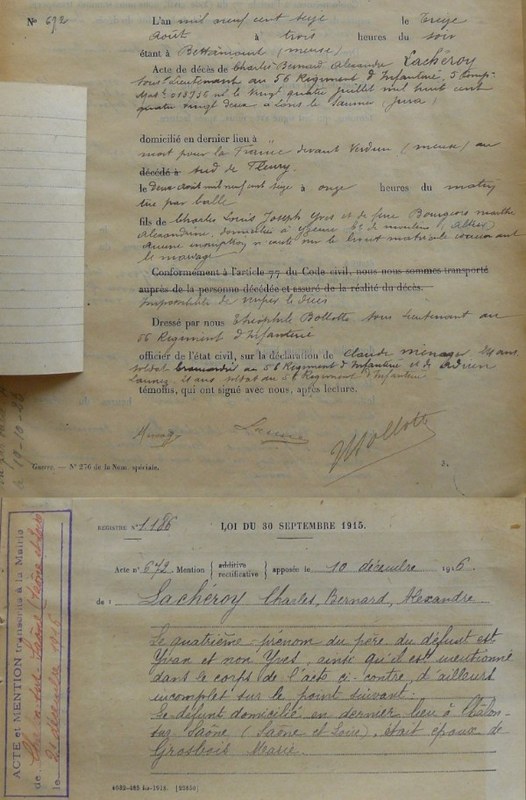 N° 692
L'an mil neuf cent seize le Treize
Août à trois heures du soir
étant à Bettainvont (Meuse)
Acte de décès de Charles Bernard Alexandre Lachéroy
Sous Lieutenant au 56 Regiment d'Infanterie, 5 Comp.
né le vingt quatre juillet mil huit cent
quatre vingt deux à Lons le Saunier (Jura)
domicilié en dernier lieu à
mort pour la France devant Verdun (Meuse) au
décédé à sud de Fleury
le Deux Août mil neuf cent seize à onze heures du matin
tué par balle
fils de Charles Louis Joseph Yves et de feue Bourgeois Marthe
Alexandrine, domiciliés à
Aucune inscription n'existe sur le livret matricule concernant
le mariage
Conformément à l'article 77 du Code civil, nous nous sommes transporté
auprès de la personne décédée et assuré de la réalité du décès.
Impossibilité de
Dressé par nous Théophile Bollotte sous Lieutenant au
56 Regiment d'Infanterie
officier de l'état civil, sur la déclaration de Claude Menager 24 ans
soldat brancardier au 56 Regiment d'Infanterie et de Adrien
ans soldat au 56 Regiment d'Infanterie
témoins, qui ont signé avec nous, après lecture.
Bollotte
Guerre. — N° 276 de la Nom. spéciale.
19-10-26
REGISTRE N° 1186 LOI DU 30 SEPTEMBRE 1915.
Acte n° 672 Mention additive rectificative apposée le 10 décembre 1916.
de : Lachéroy Charles, Bernard, Alexandre
Le quatrième prénom du père du défunt est
Yvan et non Yves, ainsi qu'il est mentionné
dans le corps de l'acte ci-contre, d'ailleurs
incomplet sur le point suivant :
Le défunt domicilié en dernier lieu à Châlon-
sur Saône (Saône et Loire), était époux de
Grosbois Marie
ACTE et MENTION transcrits à la Mairie
de Chalon sur Saône (Saône et Loire)
le 21 décembre 1916